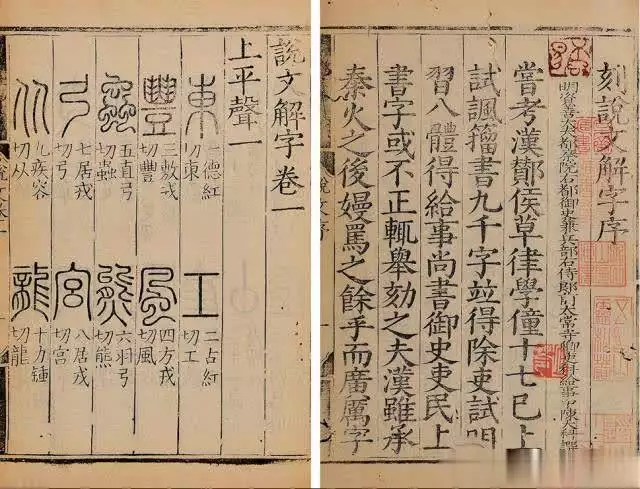 刻說文解字序
明資善大夫都察院右都御史兼兵部右侍郎前太常寺卿吏科給事中陳大科譔
嘗考漢酇侯草律學僮十七已上
試諷籀書九千字並得除吏試
習八體得給事尚書御史吏民上
書字或不正輒舉劾之夫漢雖承
秦火之後嫚罵之餘乎而廣厲字
說文序
說文解字卷一
上平聲一
東 一德紅切東 工 二古紅切工
豐 三敷戎切豐 風 四方戎切風
蟲 五直弓切蟲 熊 六羽弓切熊
弓 七居戎切弓 宮 八居戎切宮
从 九疾容切从 龍 十力鍾切龍